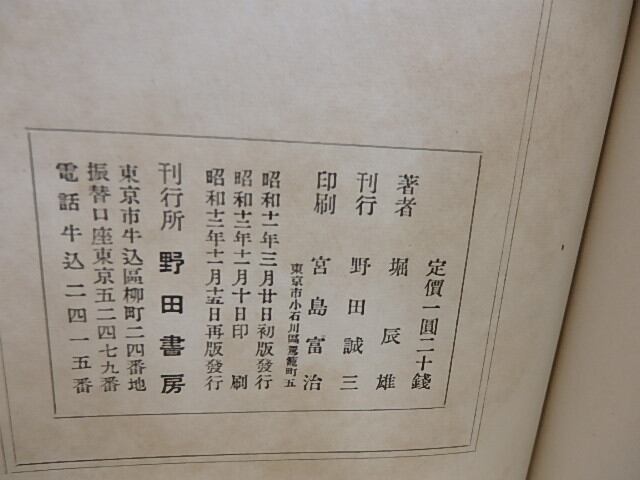 定價一圓二十錢
著者 堀辰雄
刊行 野田誠三
印刷 宮島富治
東京市小石川區駕籠町五
昭和十一年三月廿日初版發行
昭和十二年十一月十日印刷
昭和十二年十一月十五日再版發行
刊行所 野田書房
東京市牛込區柳町二四番地
振替口座東京五二四七九番
電話牛込二四一五番